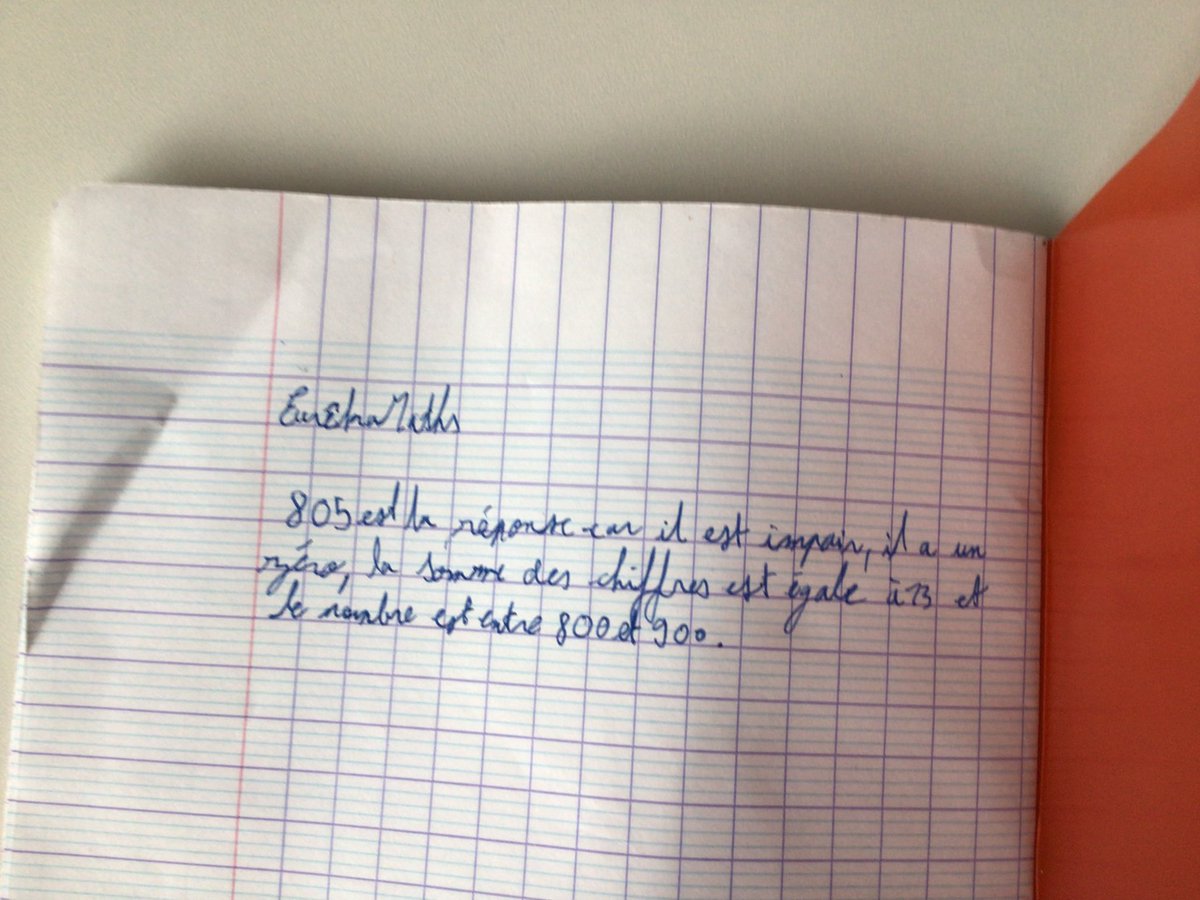 EurEkaMaths
805 est la réponse car il est impair, il a un
zéro, la somme des chiffres est égale à 13 et
le nombre est entre 800 et 900.